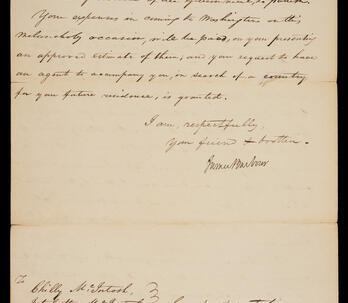 of the Government, to
Your expenses in coming to Washington on this
melancholy occasion, will be paid, on your presenting
an approved estimate of them, and your request to have
an agent to accompany you, in search of a country
for your future residence, is granted.
I am, respectfully,
Your friend & brother.
James Barbour
To
Chilly McIntosh,